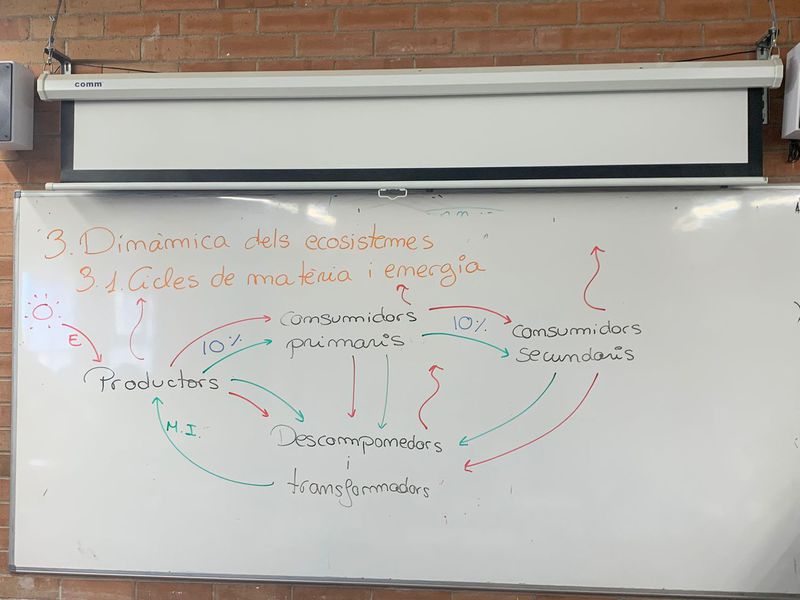 comm
3. Dinàmica dels ecosistemes
3.1. Cicles de matèria i energia
E
Productors
10%
consumidors
primaris
10%
consumidors
secundaris
M.I.
Descomponedors
i
transformadors